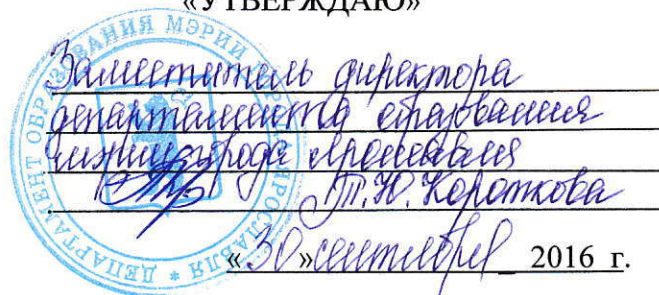 «УТВЕРЖДАЮ»
Заместитель директора
департамента образования
мэрии города Ярославля
Т.Ю. Короткова
«30» сентября 2016 г.
ДЕПАРТАМЕНТ ОБРАЗОВАНИЯ МЭРИИ ГОРОДА ЯРОСЛАВЛЯ *